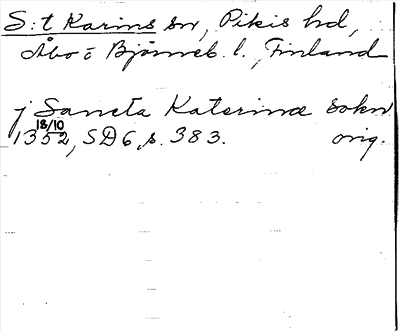 S:t Karins sn, Pikis hd,
Åbo o Björneb. l., Finland
j Sancta Katerinæ sokn
18/10
1352, SD6, s. 383. orig.